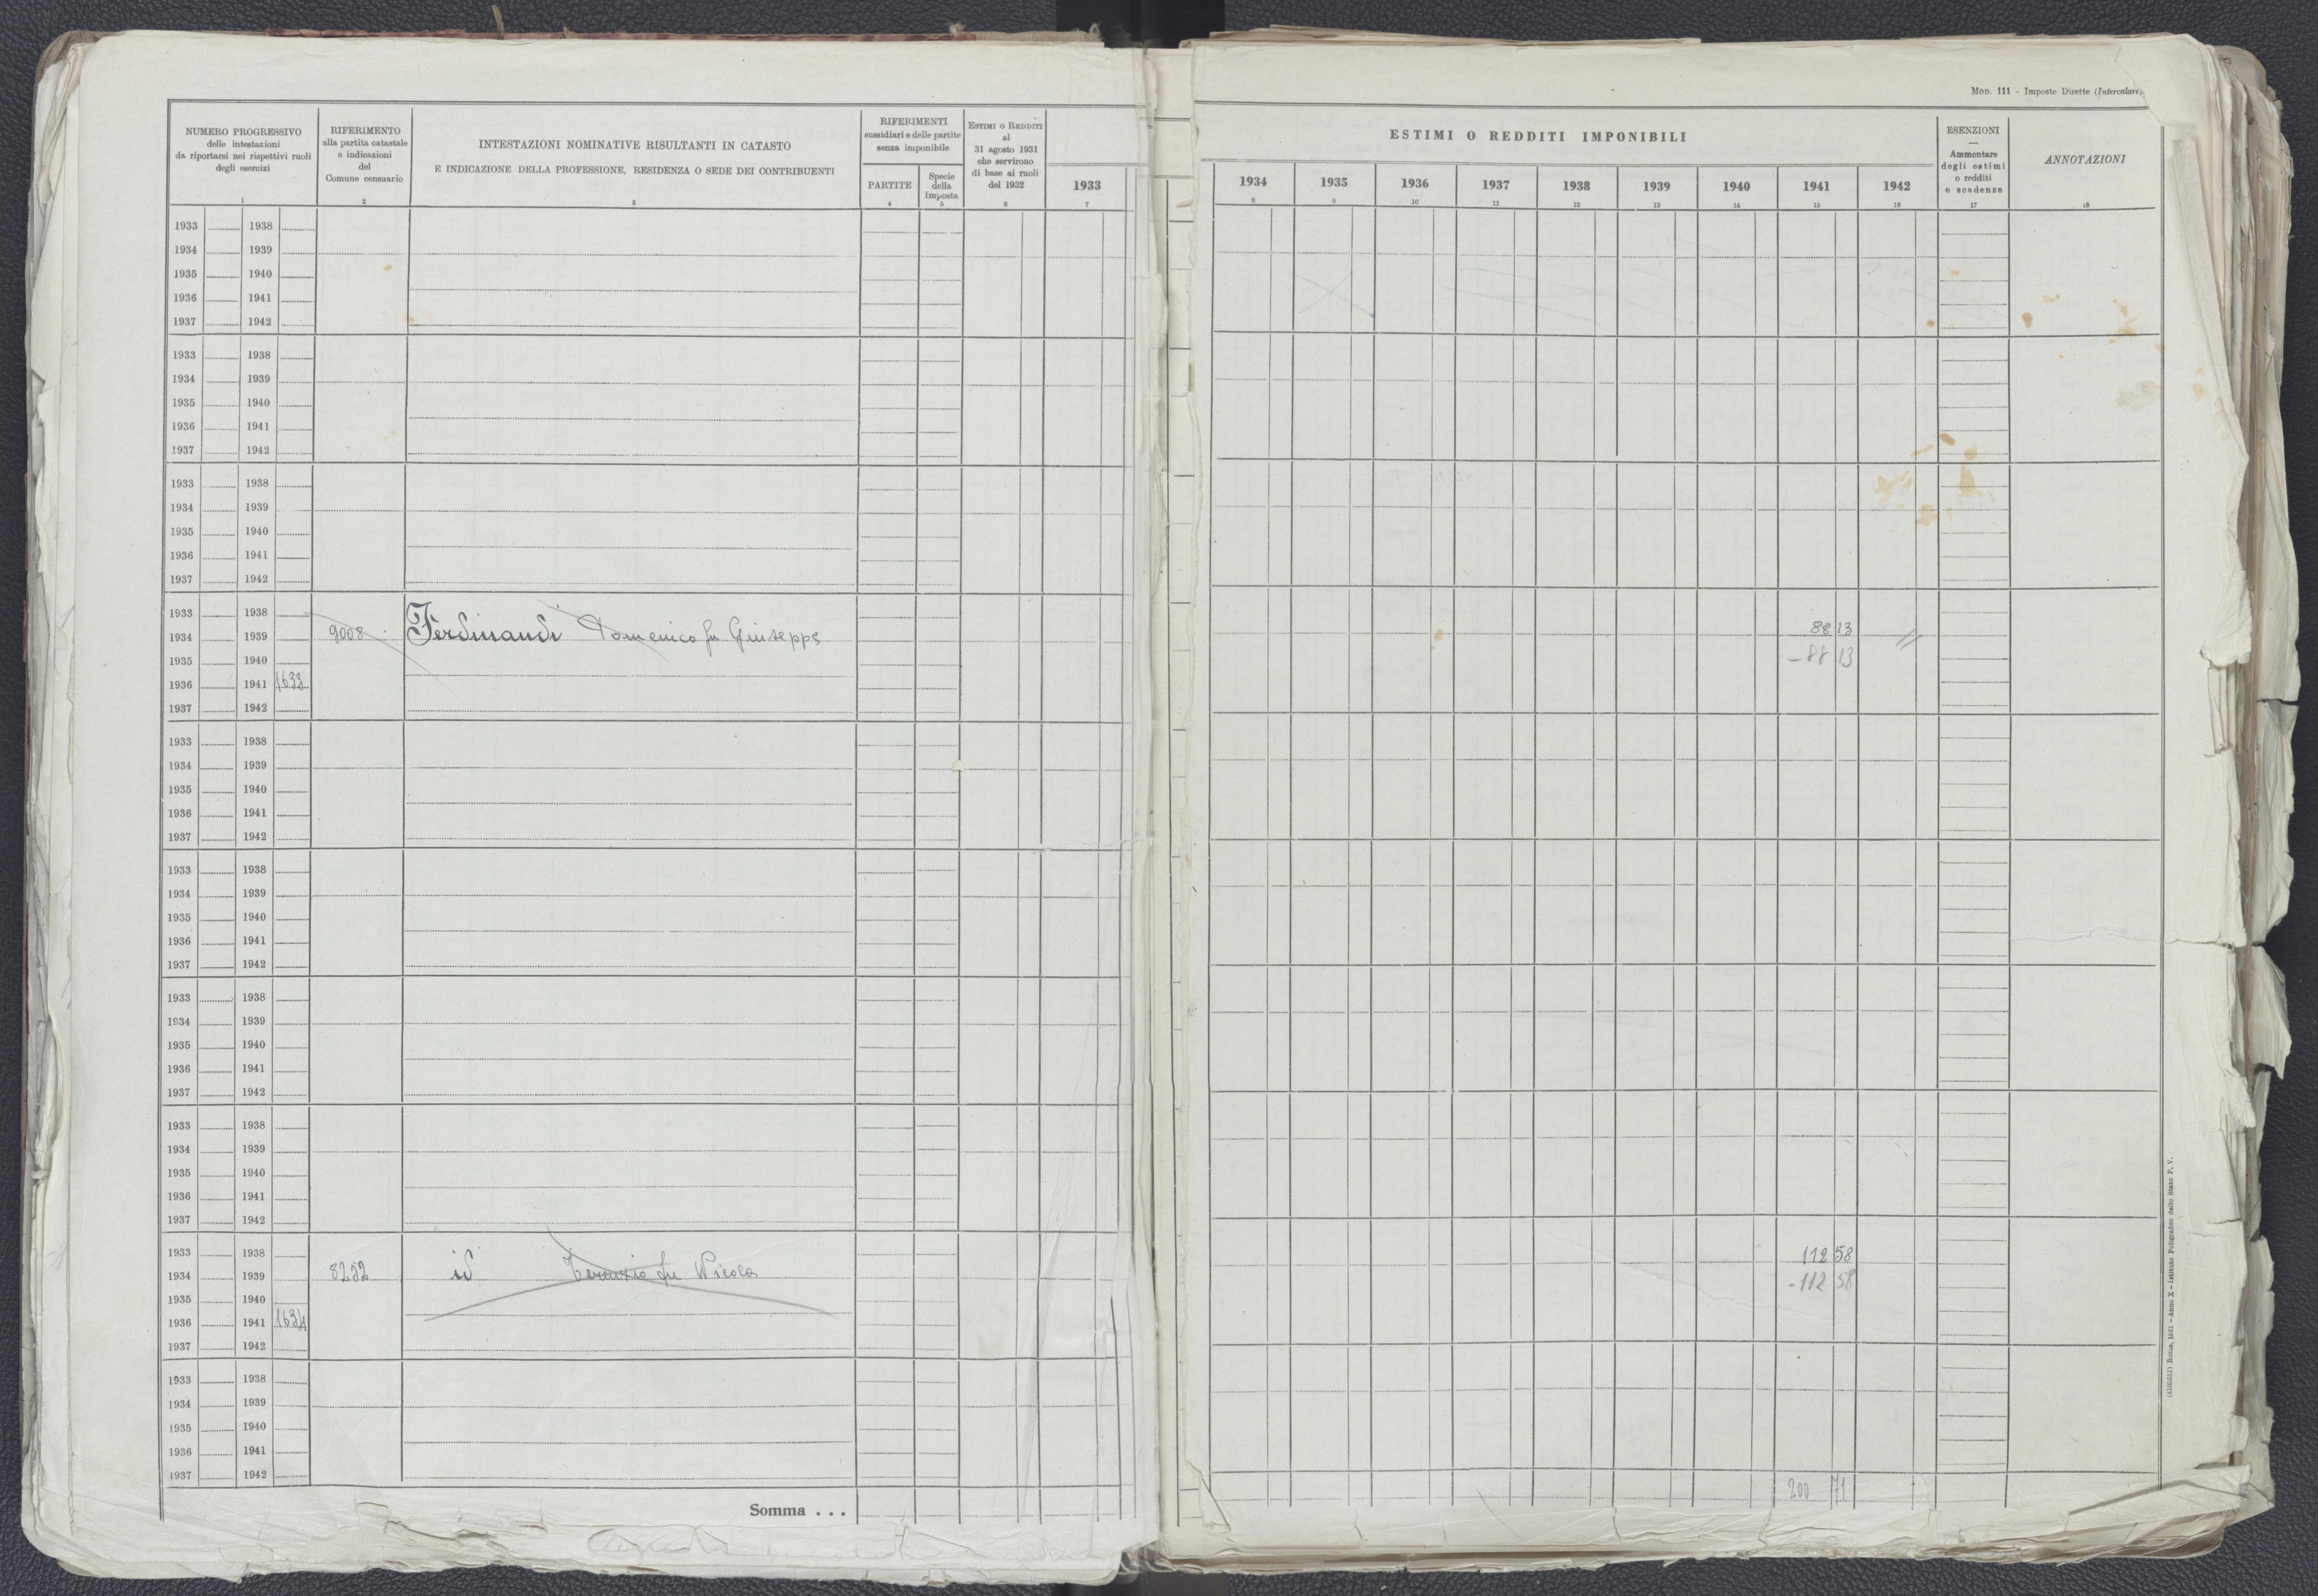 Mod. 111 - Imposte Dirette (Intercalare)
NUMERO PROGRESSIVO
delle intestazioni
da riportarsi nei rispettivi ruoli
degli esercizi
1
RIFERIMENTO
alla partita catastale
e indicazioni
del
Comune censuario
2
INTESTAZIONI NOMINATIVE RISULTANTI IN CATASTO
E INDICAZIONE DELLA PROFESSIONE, RESIDENZA O SEDE DEI CONTRIBUENTI
3
RIFERIMENTI
sussidiari e delle partite
senza imponibile
PARTITE
4
Specie
della
imposta
5
ESTIMI O REDDITI
al
31 agosto 1931
che servirono
di base ai ruoli
del 1932
6
1933
7
ESTIMI O REDDITI IMPONIBILI
1934 1935 1936 1937 1938 1939 1940 1941 1942
8 9 10 11 12 13 14 15 16
ESENZIONI
—
Ammontare
degli estimi
o redditi
e scadenze
17
ANNOTAZIONI
18
1933 1938
1934 1939
1935 1940
1936 1941
1937 1942
1933 1938
1934 1939
1935 1940
1936 1941
1937 1942
1933 1938
1934 1939
1935 1940
1936 1941
1937 1942
1933 1938
1934 1939 9008 Ferdinandi Domenico fu Giuseppe 88 13
1935 1940 - 88 13
1936 1941 1633
1937 1942
1933 1938
1934 1939
1935 1940
1936 1941
1937 1942
1933 1938
1934 1939
1935 1940
1936 1941
1937 1942
1933 1938
1934 1939
1935 1940
1936 1941
1937 1942
1933 1938
1934 1939
1935 1940
1936 1941
1937 1942
1933 1938 112 58
1934 1939 8252 id Terenzio fu Nicola - 112 58
1935 1940
1936 1941 1634
1937 1942
1933 1938
1934 1939
1935 1940
1936 1941
1937 1942
Somma . . . 200 71
(4105331) Roma, 1931 - Anno X - Istituto Poligrafico dello Stato P. V.